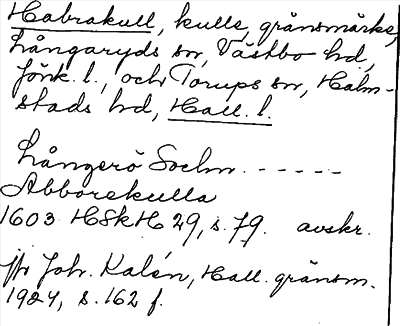 Habrakull, kulle, gränsmärke,
Långaryds sn, Västbo hd,
Jönk. l., och Torups sn, Halm-
stads hd, Hall. l.
Långerö Sochn - - - - - -
Abborekulla
1603 HSkH 29, s. 79. avskr.
jfr Joh. Kalén, Hall. gränsm.
1924, s. 162 f.